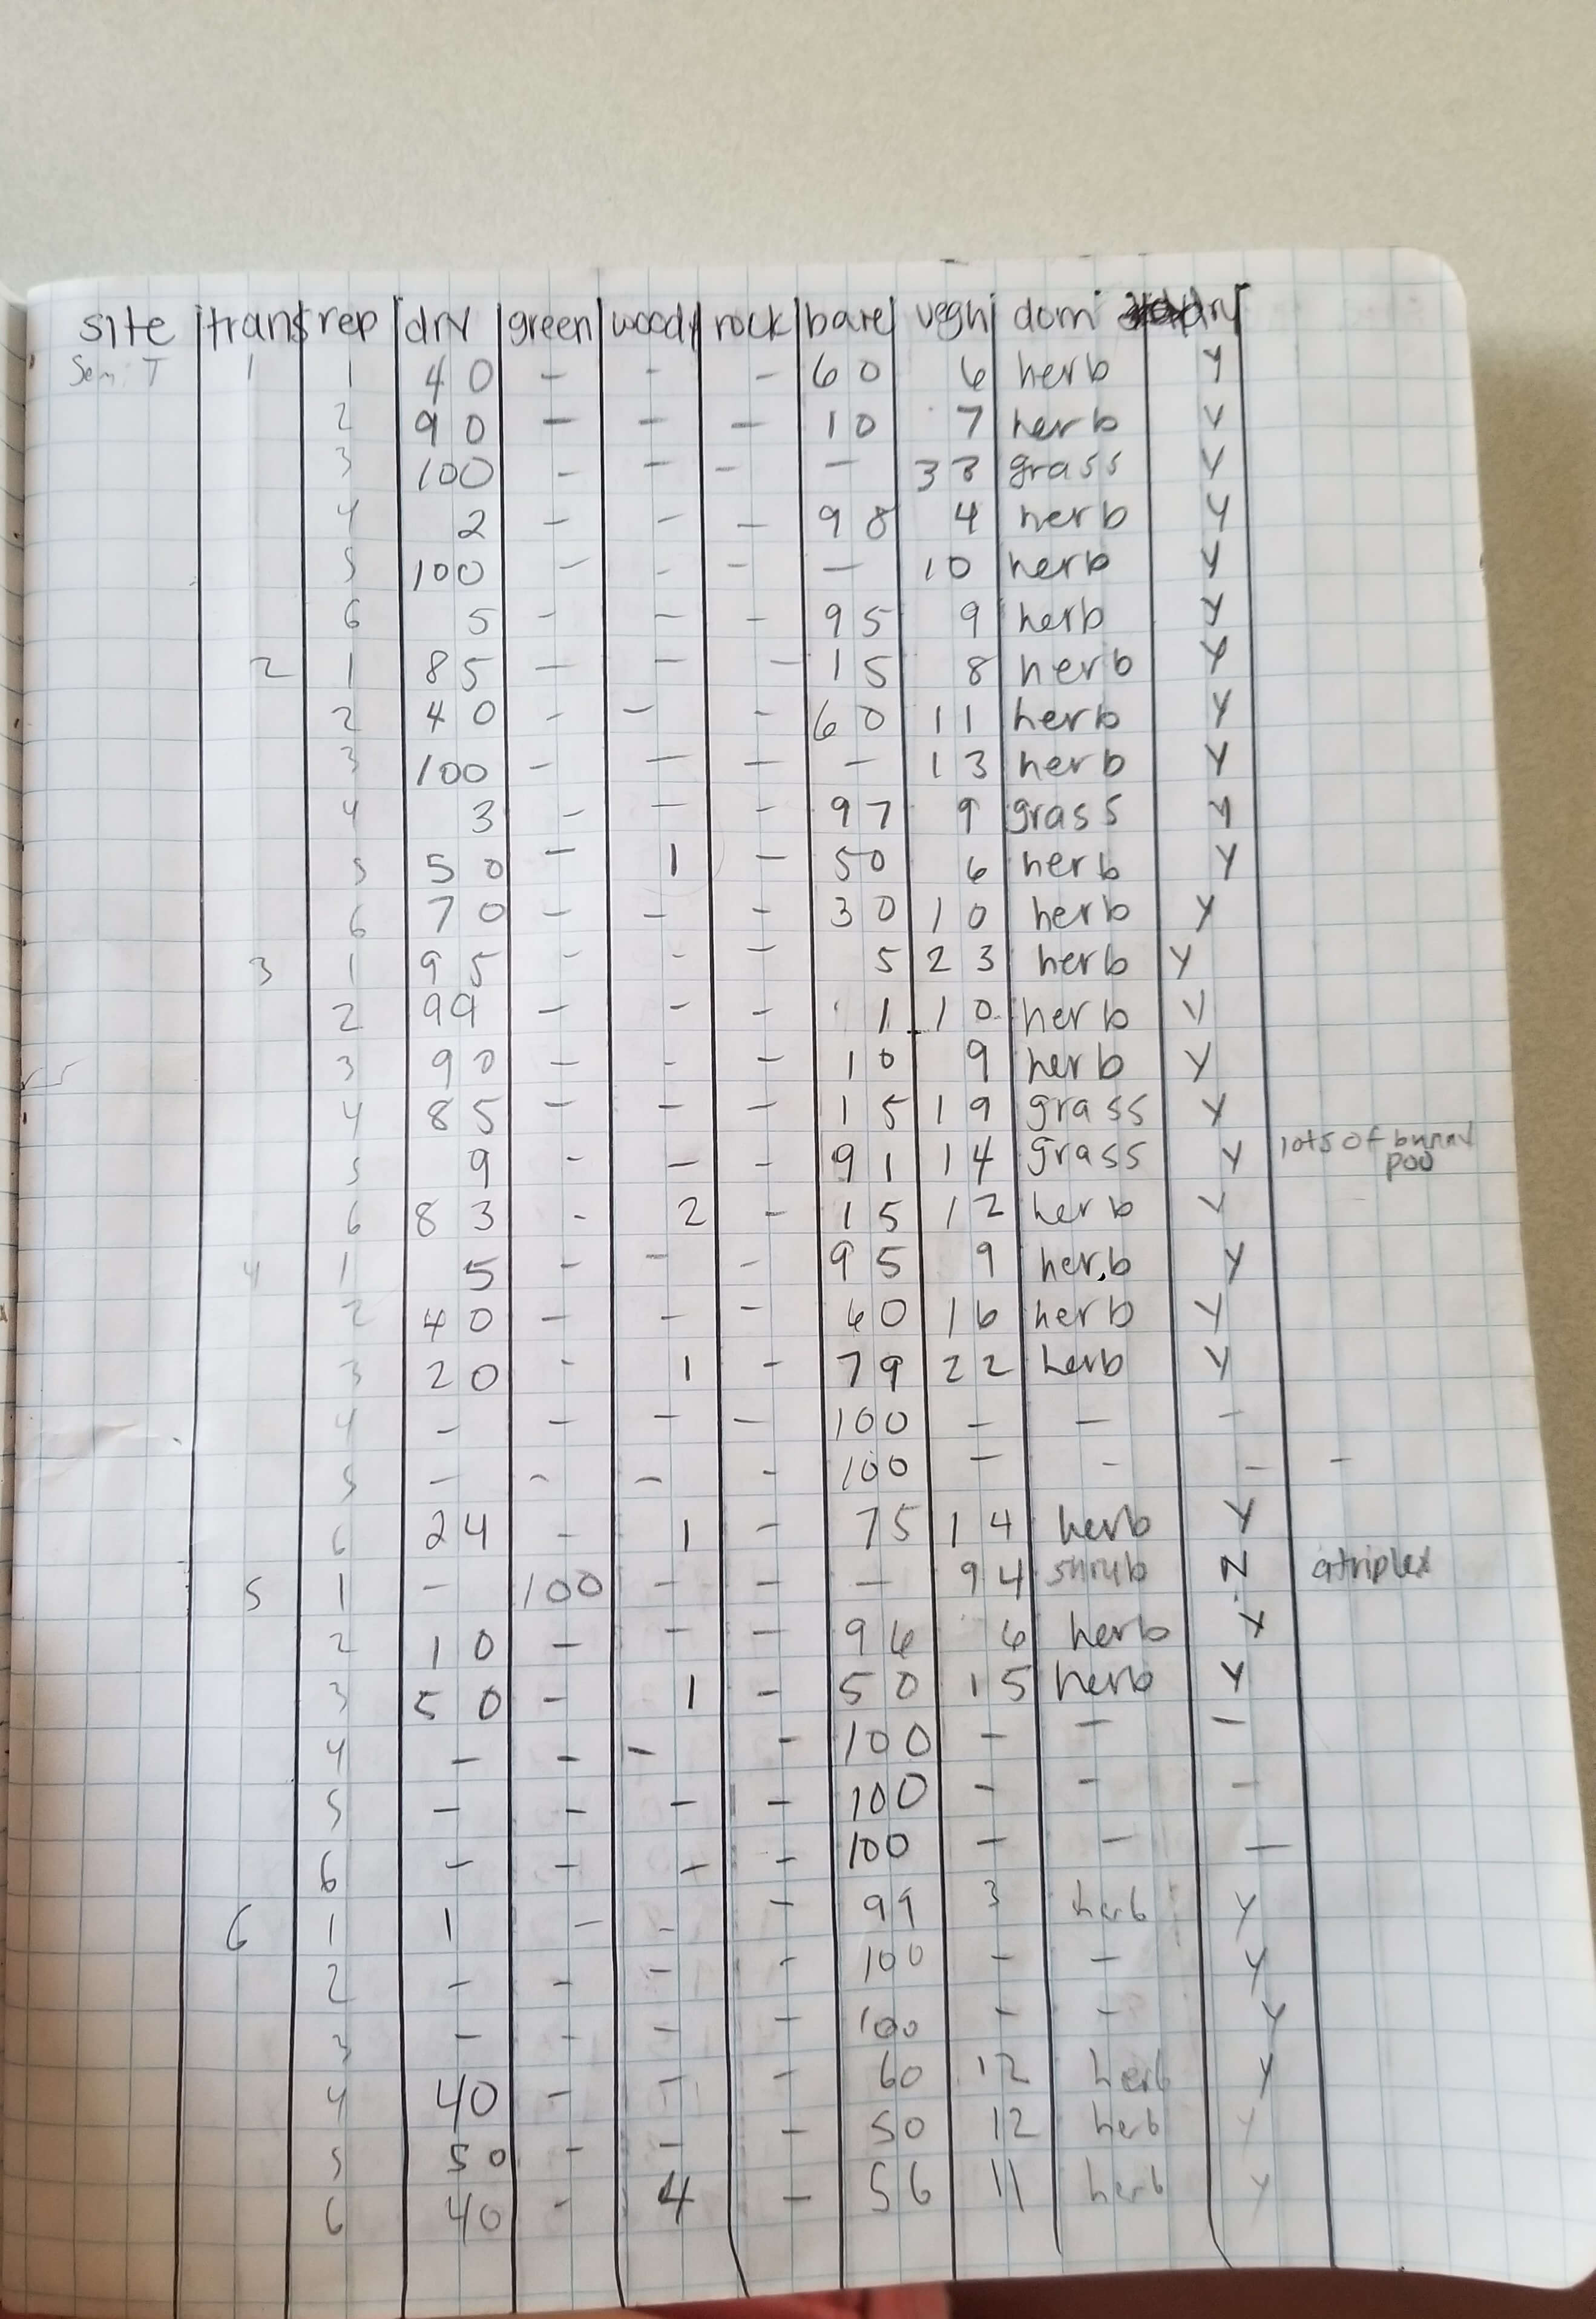 site trans rep dry green woody rock bare vegh dom dry
Semi T 1 1 40 - - - 60 6 herb Y
2 90 - - - 10 7 herb Y
3 100 - - - - 33 grass Y
4 2 - - - 98 4 herb Y
5 100 - - - - 10 herb Y
6 5 - - - 95 9 herb Y
2 1 85 - - - 15 8 herb Y
2 40 - - - 60 11 herb Y
3 100 - - - - 13 herb Y
4 3 - - - 97 9 grass Y
5 50 - 1 - 50 6 herb Y
6 70 - - - 30 10 herb Y
3 1 95 - - - 5 23 herb Y
2 99 - - - 1 10 herb Y
3 90 - - - 10 9 herb Y
4 85 - - - 15 19 grass Y
5 9 - - - 91 14 grass Y lots of bunny
poo
6 83 - 2 - 15 12 herb Y
4 1 5 - - - 95 9 herb Y
2 40 - - - 60 16 herb Y
3 20 - 1 - 79 22 herb Y
4 - - - - 100 - - -
5 - - - - 100 - - - -
6 24 - 1 - 75 14 herb Y
5 1 - 100 - - - 94 shrub N atriplex
2 10 - - - 96 6 herb Y
3 50 - 1 - 50 15 herb Y
4 - - - - 100 - - -
5 - - - - 100 - - -
6 - - - - 100 - - -
6 1 1 - - - 99 3 herb Y
2 - - - - 100 - - Y
3 - - - - 100 - - Y
4 40 - - - 60 12 herb Y
5 50 - - - 50 12 herb Y
6 40 - 4 - 56 11 herb Y